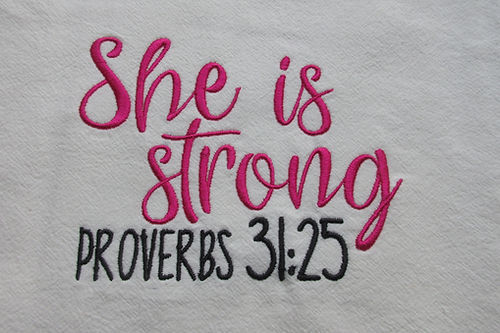 She is
strong
PROVERBS 31:25